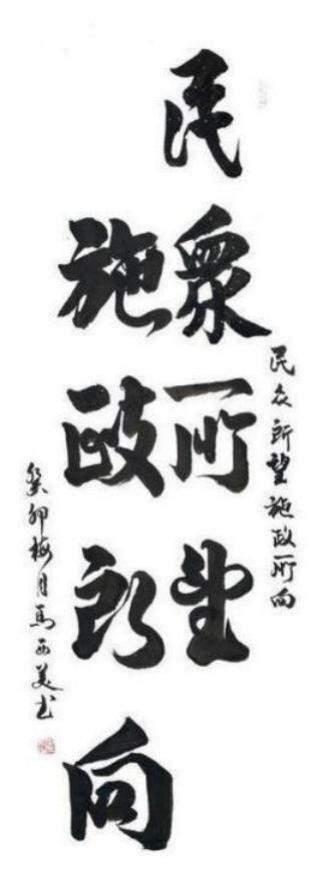 民眾所望
施政所向
民众所望施政所向
癸卯梅月马西美书